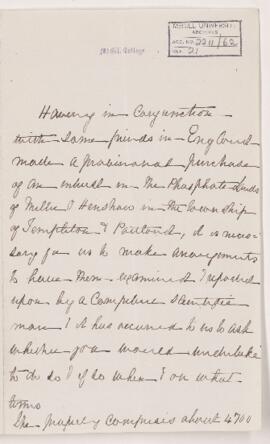 McGILL UNIVERSITY
ARCHIVES
ACC. NO. 2211/62
REF. 21
McGill College
Having in conjunction
with some friends in England
made a provisional purchase
of an interest in the Phosphate lands
of Miller & Henshaw in the township
of Templeton & Portland, it is neces-
sary for us to make arrangements
to have them examined & reported
upon by a competent scientific
man & it has occurred to us to ask
whether you would undertake
to do so & if so when & on what
terms
The property comprises about 4700